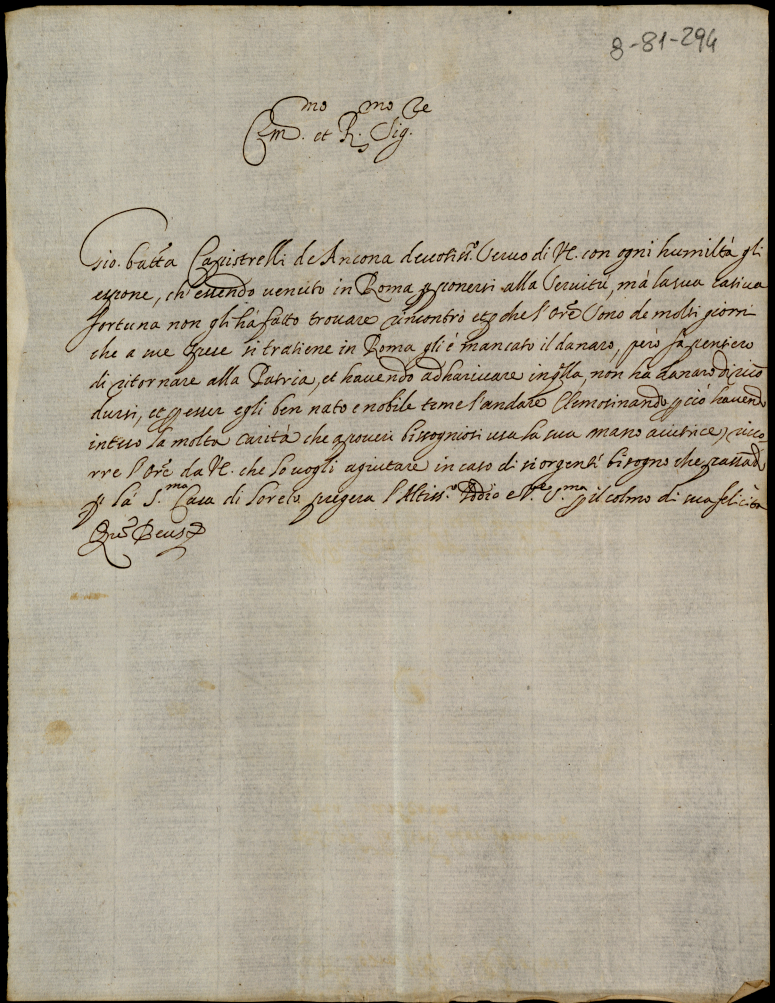 8-81-294
Em.mo et R.mo Sig.re
Gio. Batta Capistrelli de Ancona devotiss.o servo di V.E. con ogni humiltà gli
espone, ch'essendo venuto in Roma p ponersi alla servitù, mà la sua cativa
fortuna non gli hà fatto trovare rincontri et p che l'Ore sono de molti giorni
che a sue spese si tratiene in Roma gli è mancato il danaro, però fà pensiero
di ritornare alla Patria, et havendo ad harivare in qlla, non ha danaro di ricō
dursi, et p esser egli ben nato e nobile teme l'andare Elemosinando, p ciò havendo
inteso la molta carità che a poveri bissogniosi usa la sua mano aiutrice, ricco-
rre l'Ore da V.E. che lo vogli agiutare in caso di si bisogno che passādo
p la S.ma Casa di Loreto pregera l'Altiss.o Iddio e B.V. S.ma p il colmo di sua felicità
Qua Deus